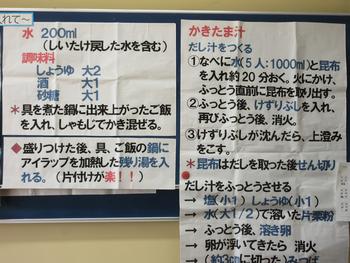 入れて～
水　200ml
(しいたけ戻した水を含む)
調味料
しょうゆ　大2
酒　大1
砂糖　大1
＊具を煮た鍋に出来上がったご飯
を入れ、しゃもじでかき混ぜる。
◆盛りつけた後、具、ご飯の鍋に
アイラップを加熱した残り湯を入
れる。(片付けが楽！！)
かきたま汁
だし汁をつくる
①なべに水(5人：1000ml)と昆布
を入れ約20分おく。火にかけ、
ふっとう直前に昆布を取り出す。
②ふっとう後、けずりぶしを入れ、
再びふっとう後、消火。
③けずりぶしが沈んだら、上澄み
をこす。
＊昆布はだしを取った後せん切り
だし汁をふっとうさせる
→　塩(小1)しょうゆ(小1)
→　水(大1/2)で溶いた片栗粉
→　ふっとう後、溶き卵
→　卵が浮いてきたら　消火
→　(約3cmに切った)みつば